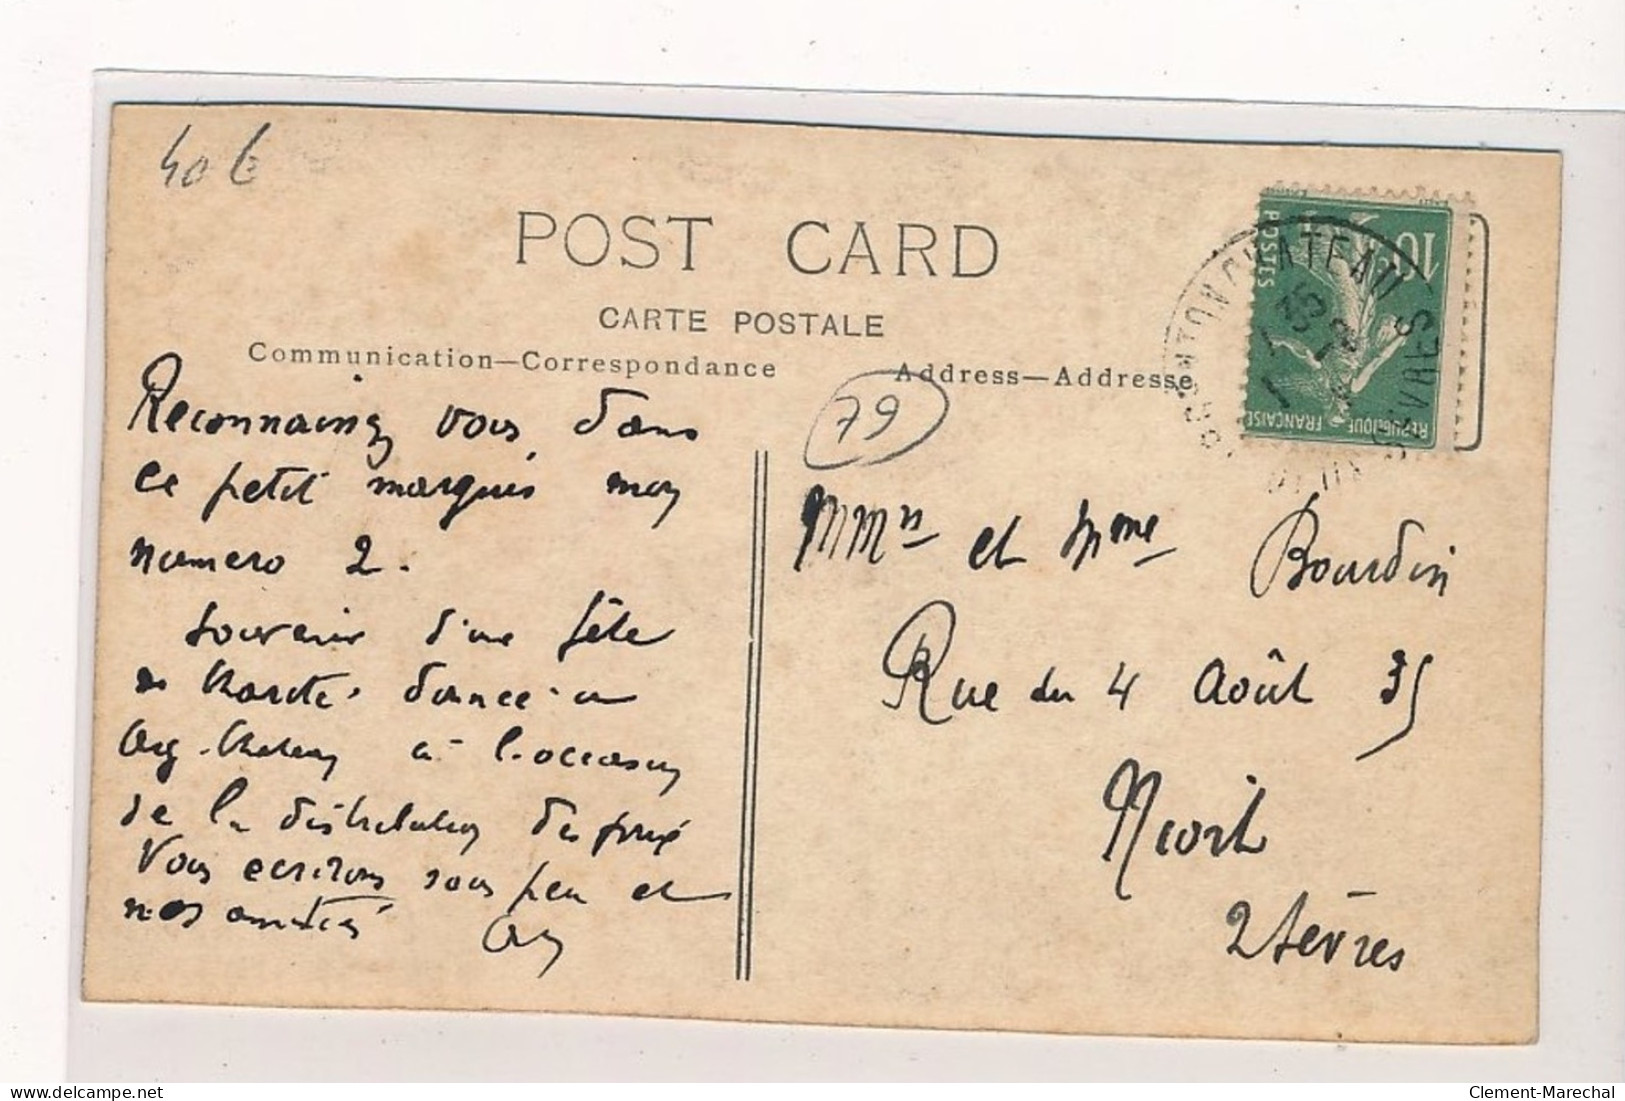 40 €
POST CARD
CARTE POSTALE
Communication—Correspondance
Address—Addresse
79
10
POSTES
REPUBLIQUE FRANCAISE
ARGENTON CHATEAU
DEUX SEVRES
Reconnaissez vous dans
ce petit marquis mon
numero 2.
Souvenir d'une fête
de charité donnée a
Arg. Chateau à l'occasion
de la distribution des prix
Vous ecrirons sous peu et
nos amitiés
et Mme Bourdin
Rue du 4 Août 35
Niort
2 Sèvres
Clement-Marechal